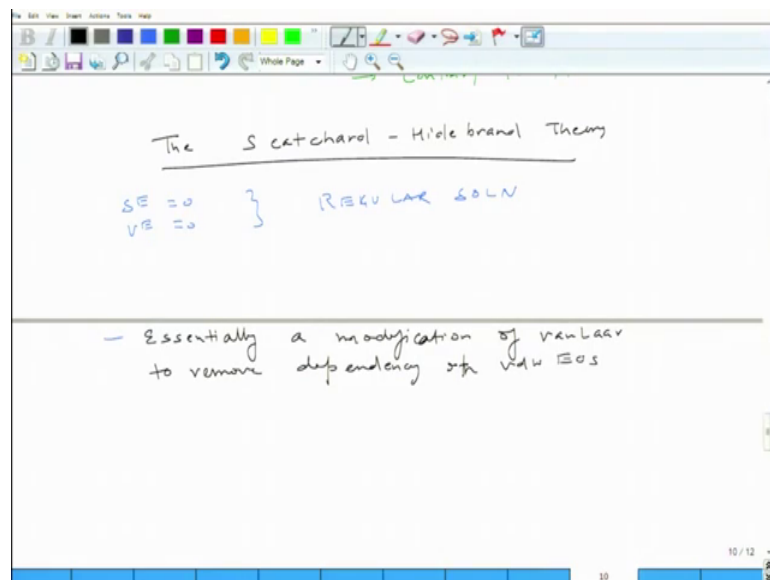 File Edit View Insert Actions Tools Help
B I
Whole Page
The Scatchard - Hidebrand Theory
SE = 0
VE = 0 } REGULAR SOLN
- Essentially a modification of vanLaar
to remove dependency of vdW EOS
10 / 12
10